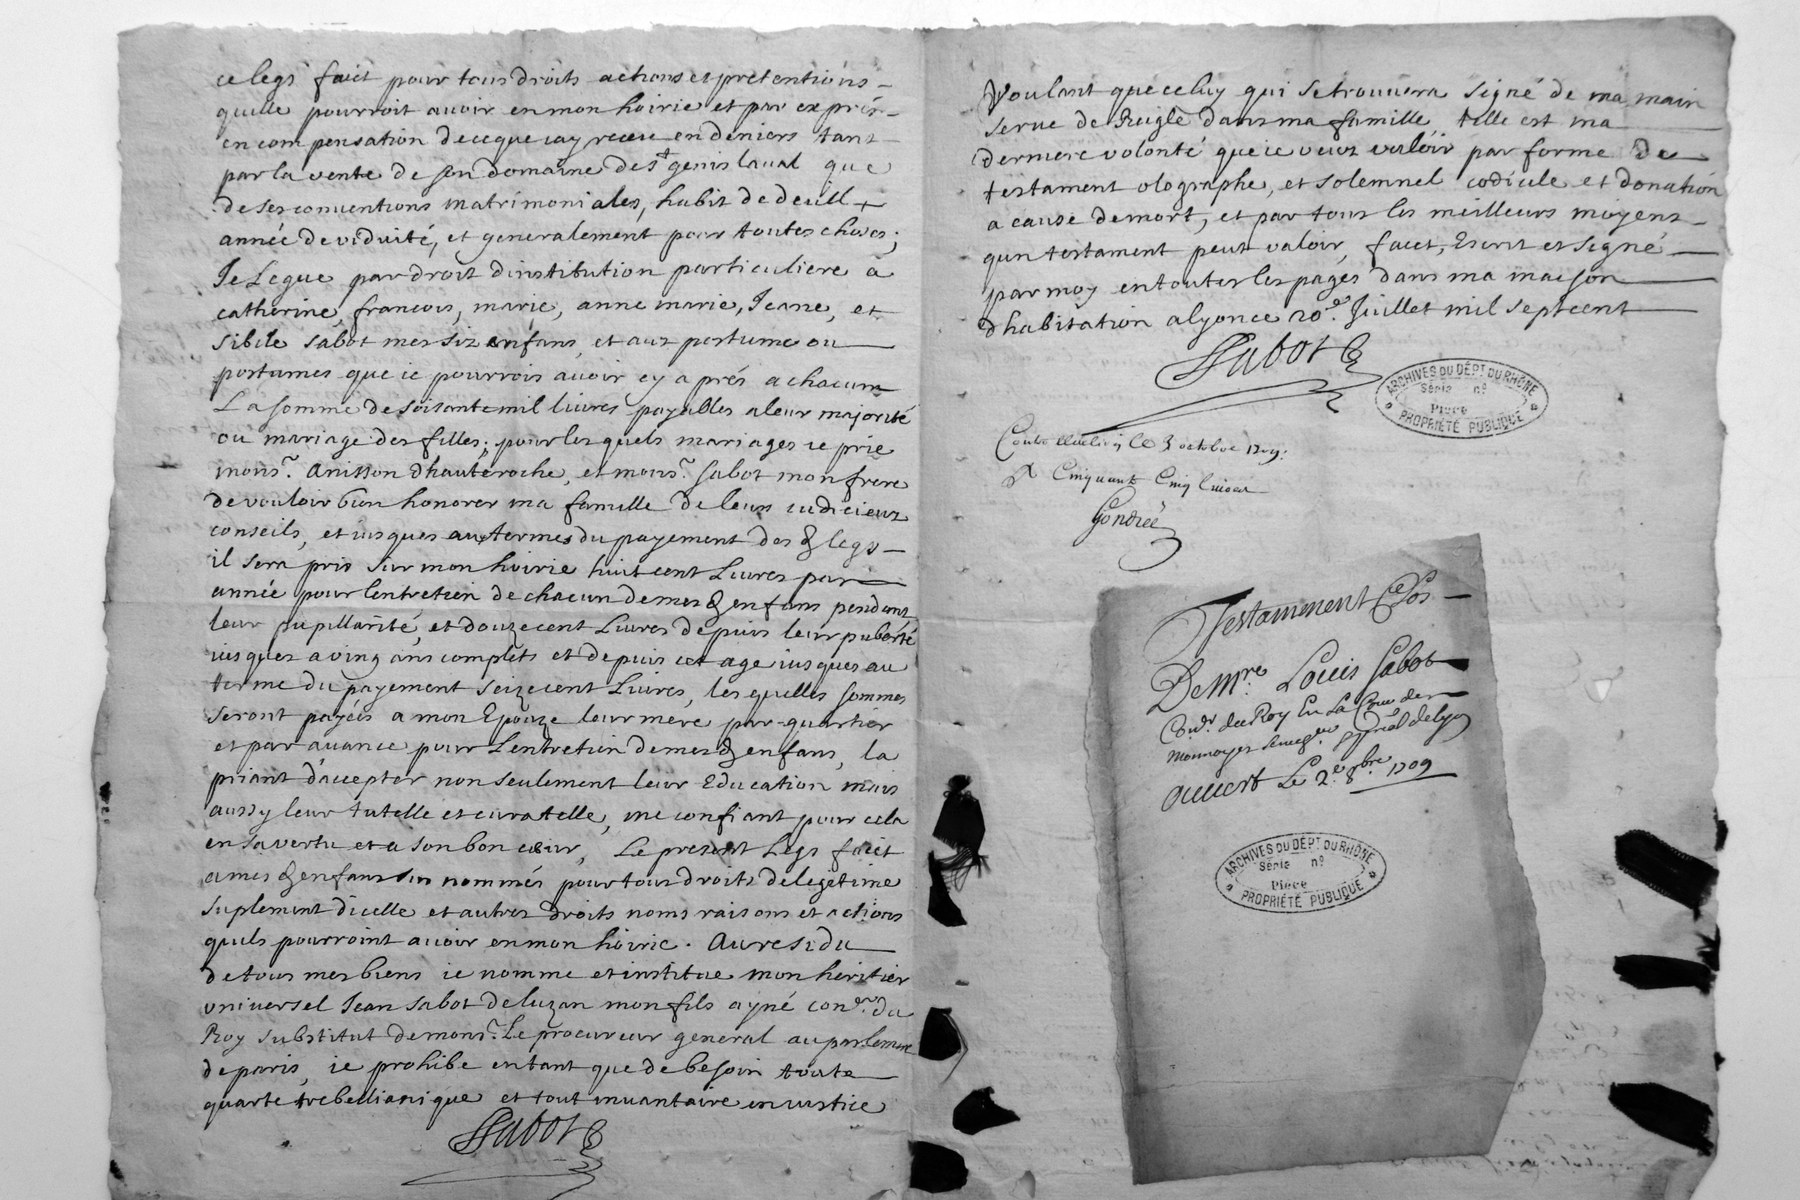 ce legs faict pour tous droits actions et pretentions
quelle pourroit auoir en mon hoirie et par exprés
en compensation de ce que iay receu en deniers tant
par la vente de son domaine de st genis laual que
de ses conuentions matrimoniales, habit de deuil +
année de viduité, et generalement pour toutes choses;
Je Legue par droit dinstitution particuliere a
catherine, francois, marie, anne marie, Jeane, et
sibile sabot mes six enfans, et aux postume ou
postumes que ie pourrois auoir cy aprés a chacun
La somme de soisante mil liures payables a leur majorité
ou mariage des filles; pour les quels mariages ie prie
monsr. Anisson dhauteroche, et monsr. sabot mon frere
de vouloir bien honorer ma famille de leurs iudicieux
conseils, et iusques aux termes du payement des d legs
il sera pris sur mon hoirie huit cent Liures par
année pour lentretien de chacun de mes d enfans pendant
leur pupillarité, et douze cent Liures depuis leur puberté
iusques a ving ans complets et depuis cet age iusques au
terme du payement seize cent Liures, les quelles sommes
seront payées a mon Epouze leur mere par quartier
et par auance pour Lentretien de mes d enfans, la
priant daccepter non seulement leur Education mais
aussy leur tutelle et curatelle, me confiant pour cela
en sa vertu et a son bon cœur, Le present Legs faict
a mes d enfans sus nommés pour tous droits de legitime
suplement dicelle et autres droits noms raisons et actions
quils pourroint auoir en mon hoirie. Au residu
de tous mes biens ie nomme et institue mon heritier
vniversel Jean sabot de luzan mon fils ayné coner. du
Roy substitut de monsr. Le procureur general au parlement
de paris, ie prohibe entant que de besoin toute
quarte trebellianique et tout inuantaire en iustice
Sabot
Voulant que celuy qui se trouuera signé de ma main
serue de Reigle dans ma famille, telle est ma
derniere volonté que ie veux valoir par forme de
testament olographe, et solemnel codicile et donation
a cause de mort, et par tous les meilleurs moyens
qun testament peut valoir, faict, Escrit et signé
par moy en toutes les pages dans ma maison
dhabitation a lyon ce 20e. Juillet mil sept cent
Sabot
ARCHIVES DU DÉPT DU RHÔNE
Série nº
Piece
PROPRIÉTÉ PUBLIQUE
le 3 octobre 1709.
Cinquante Cinq
Testamment Clos
De Mre. Louis Sabot
Conr. du Roy En La Cour des
monnoyes de lyon
ouuert Le 2e. 8bre. 1709
ARCHIVES DU DÉPT DU RHÔNE
Série nº
Piece
PROPRIÉTÉ PUBLIQUE